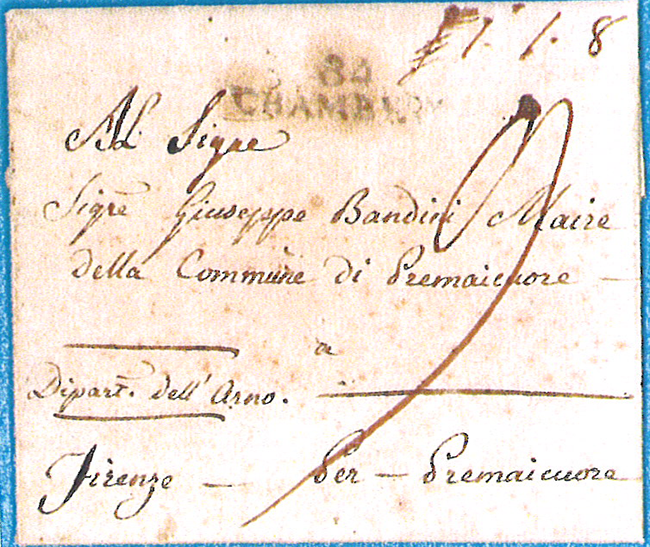 1. 1. 8
84
CHAMBERY
Al Sigre
Sigre Giuseppe Bandini Maire
della Commune di Premaicuore
a
Dipart. dell' Arno.
Firenze — Per — Premaicuore